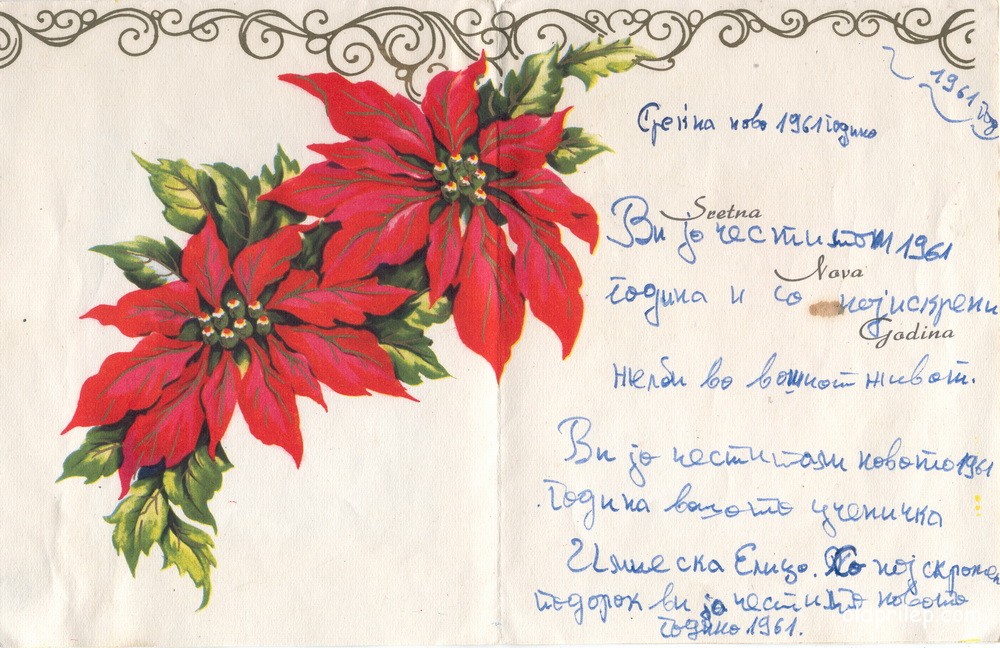 1961 год
Среќна ново 1961 година
Sretna
Ви јо честитам 1961
Nova
година и со нојискрени
Godina
жељби во вошиот живот.
Ви јо честитам новото 1961
година вашата ученичка
Елицо. Со нојскромен
подорок ви јо честито новото
годино 1961.
oldprilep.com